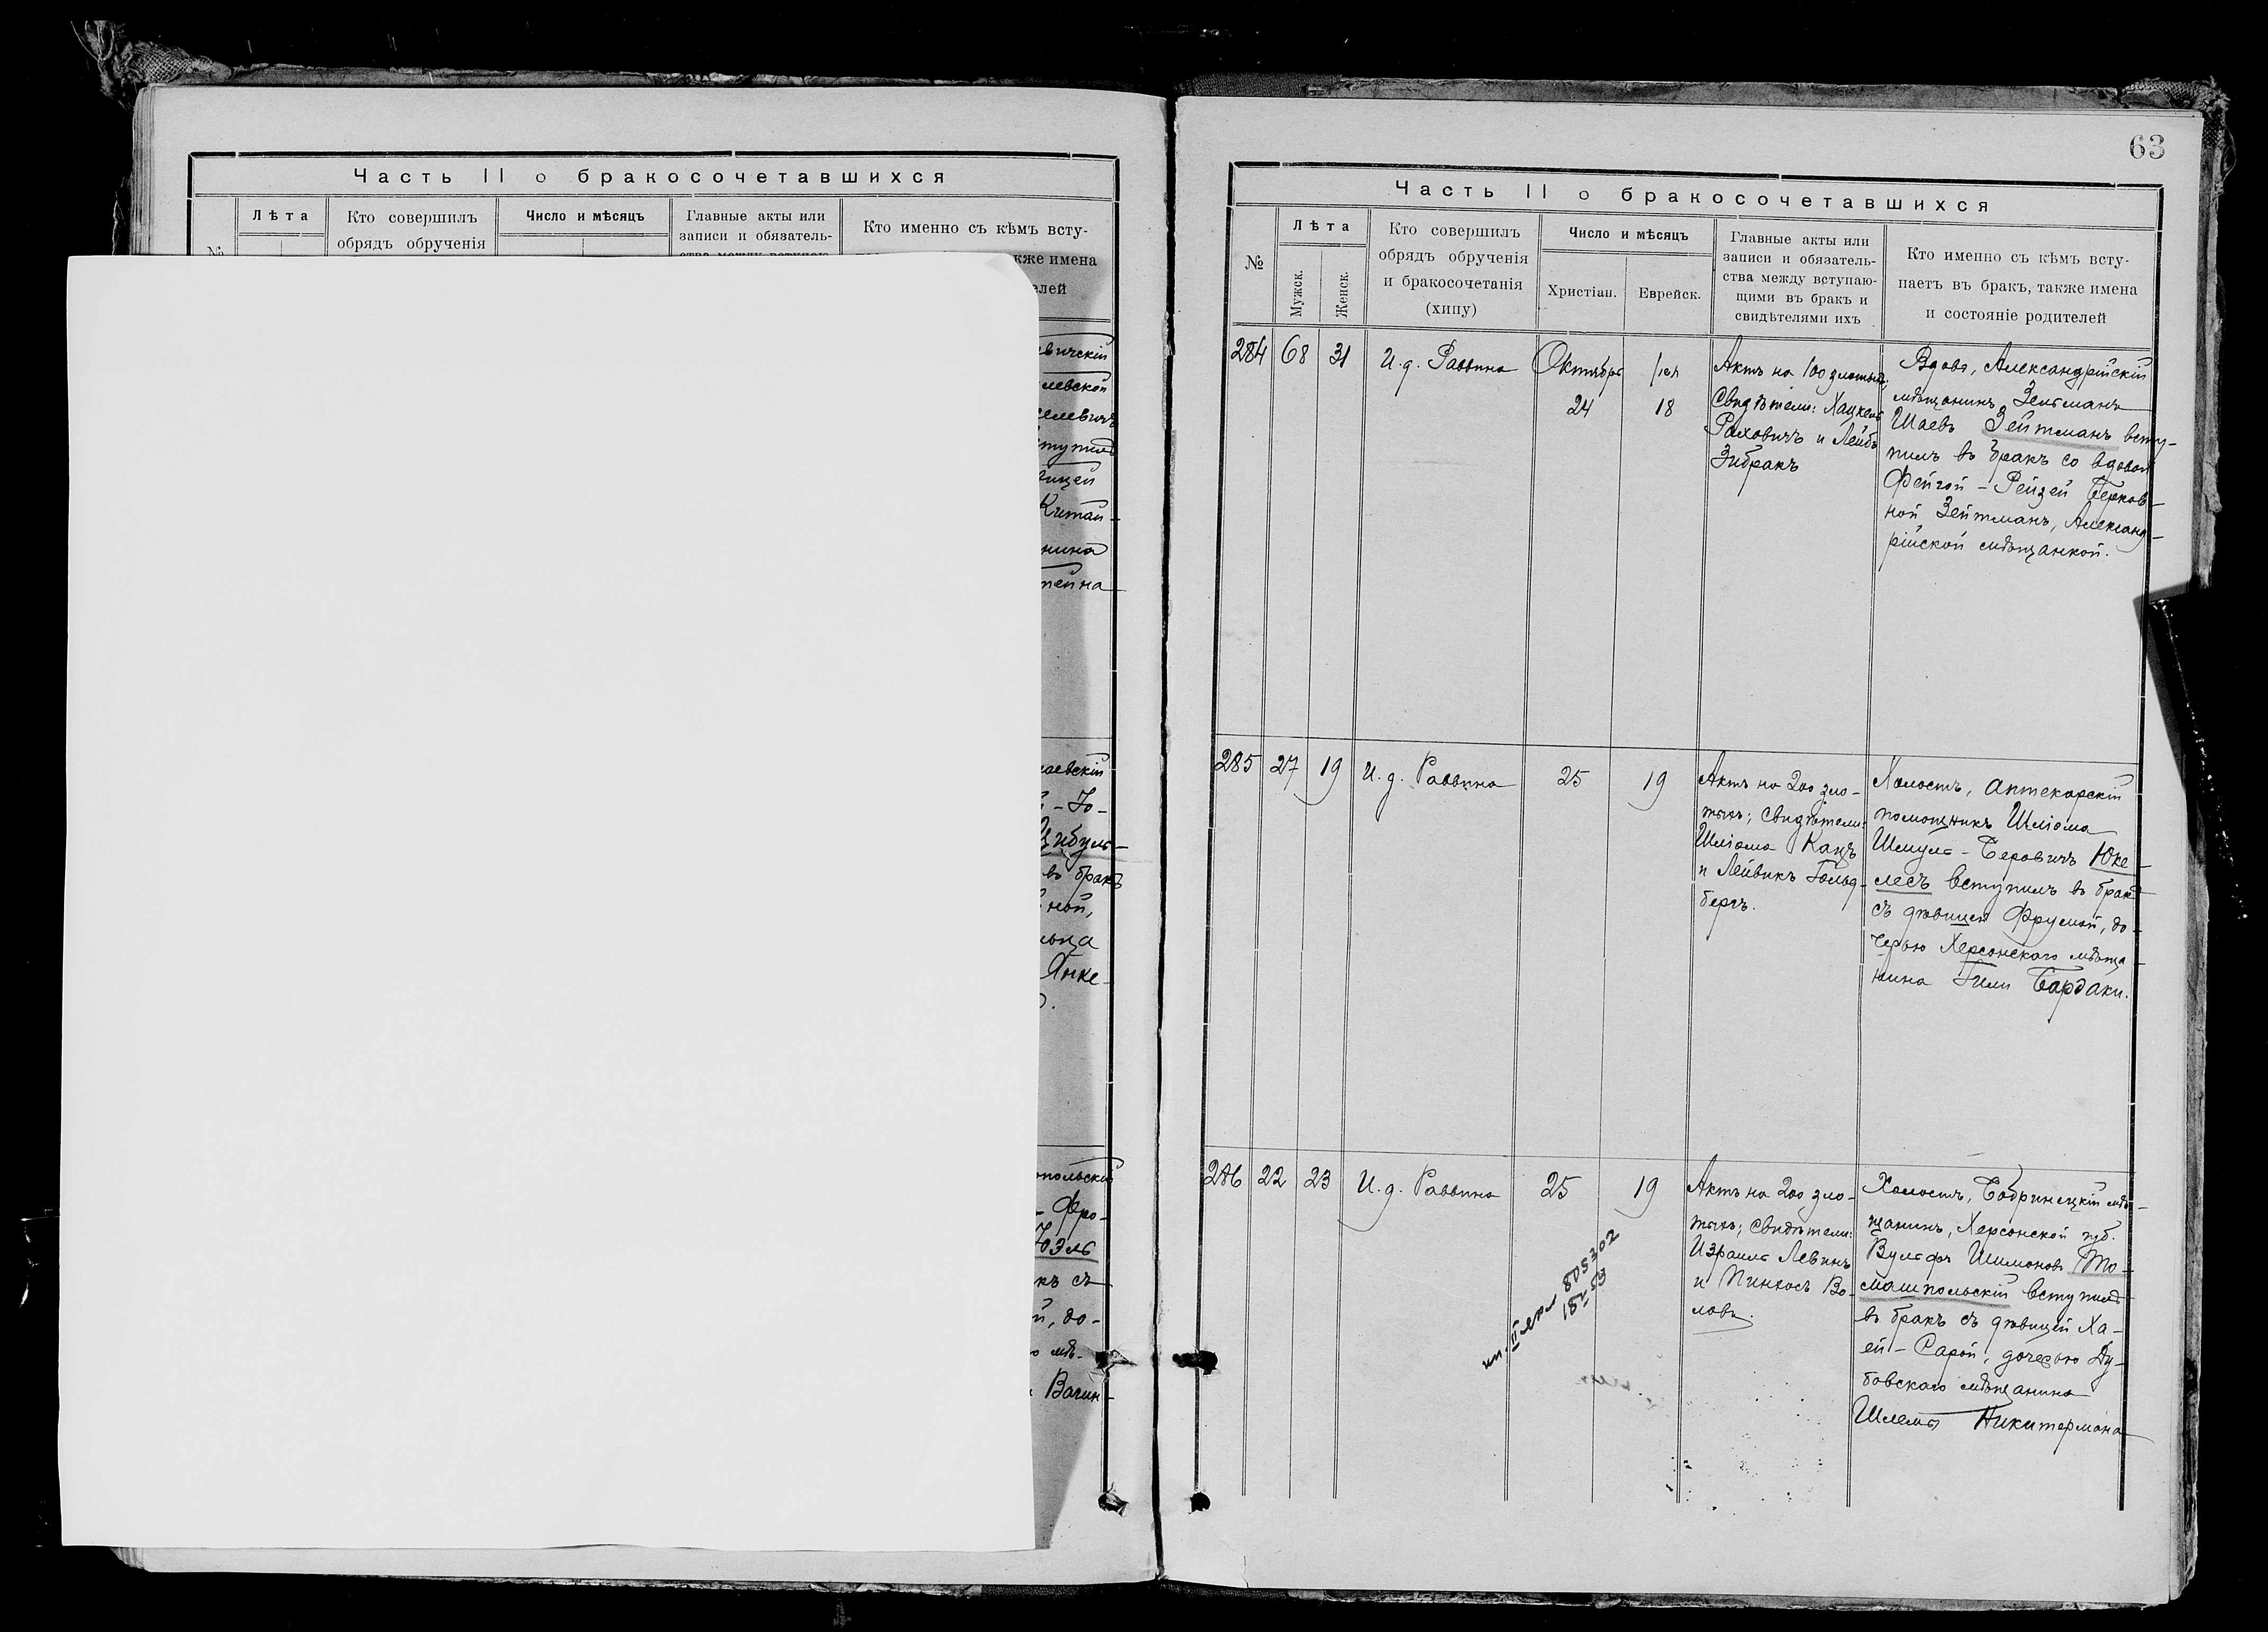 Часть II о бракосочетавшихся
№
Лѣта
Кто совершилъ
обрядъ обрученія
Число и мѣсяцъ
Главные акты или
записи и обязатель-
Кто именно съ кѣмъ всту-
кже имена
елей
евичскій
левской
селевичъ
ступилъ
вицей
Китай-
нина
тейна
аевскій
-Іо-
Цибуль-
въ бракъ
ной,
Янке-
опольскій
- Фро-
Юэль
къ съ
й, до-
мѣ-
Вагин-
63
Часть II о бракосочетавшихся
№
Лѣта
Мужск.
Женск.
Кто совершилъ
обрядъ обрученія
и бракосочетанія
(хипу)
Число и мѣсяцъ
Христіан.
Еврейск.
Главные акты или
записи и обязатель-
ства между вступаю-
щими въ бракъ и
свидѣтелями ихъ
Кто именно съ кѣмъ всту-
паетъ въ бракъ, также имена
и состояніе родителей
284
68
31
И. д. Раввина
Октября
24
18
Актъ на 100 злотыхъ;
Свидѣтели: Хацкель
Раховичъ и Лейбъ
Зибракъ
Вдовъ, Александрійскій
мѣщанинъ Зельманъ
Шаевъ Зейтманъ всту-
пилъ въ бракъ со вдовой
Фейгой - Рейзей Берков-
ной Зейтманъ, Александ-
рійской мѣщанкой.
285
27
19
И. д. Раввина
25
19
Актъ на 200 зло-
тыхъ; Свидѣтели:
Шліома Кацъ
и Лейвикъ Гольд-
бергъ.
Холостъ, аптекарскій
помощникъ Шліома
Шмуль - Беровичъ Юке-
лесъ вступилъ въ бракъ
съ дѣвицей Фрумой, до-
черью Херсонскаго мѣща-
нина Гили Бардаки.
286
22
23
И. д. Раввина
25
19
Актъ на 200 зло-
тыхъ; Свидѣтели:
Израиль Левинъ
и Пинхосъ Во-
ловъ.
Холостъ, Бобринецкій мѣ-
щанинъ, Херсонской губ.
Вульфъ Шимоновъ То-
машпольскій вступилъ
въ бракъ съ дѣвицей Ха-
ей - Сарой, дочерью Ду-
бовскаго мѣщанина
Шлемы Никитермана
805302